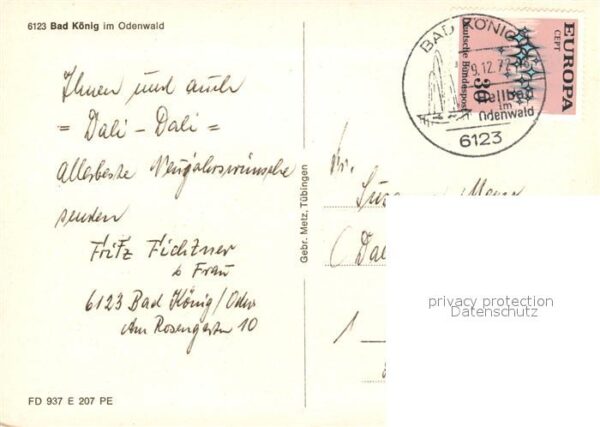 6123 Bad König im Odenwald
Ihnen und auch
= Dali - Dali =
allerbeste Neujahrswünsche
senden
Fritz Fichtner
& Frau
6123 Bad König/Odw
Am Rosengarten 10
FD 937 E 207 PE
Gebr. Metz, Tübingen
BAD KÖNIG
9.12.72
im
Odenwald
6123
EUROPA
CEPT
Deutsche Bundespost
30
privacy protection
Datenschutz